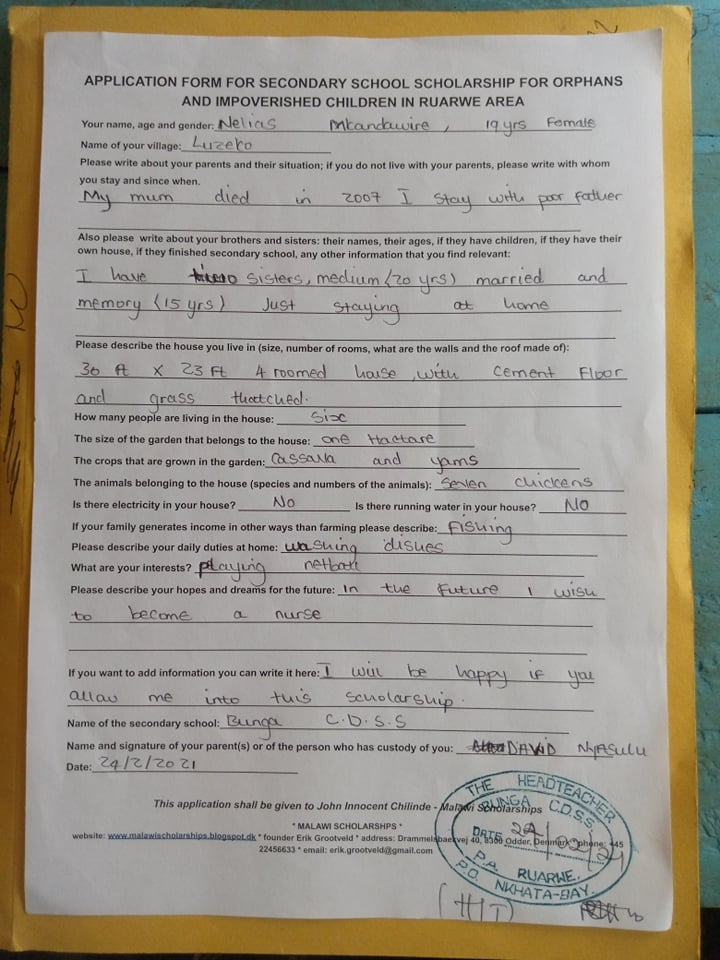 APPLICATION FORM FOR SECONDARY SCHOOL SCHOLARSHIP FOR ORPHANS
AND IMPOVERISHED CHILDREN IN RUARWE AREA
Your name, age and gender: Nelias Mkandawire, 19 yrs Female
Name of your village: Luzeko
Please write about your parents and their situation; if you do not live with your parents, please write with whom
you stay and since when.
My mum died in 2007 I stay with poor father
Also please write about your brothers and sisters: their names, their ages, if they have children, if they have their
own house, if they finished secondary school, any other information that you find relevant:
I have sisters, medium (20 yrs) married and
memory (15 yrs) Just staying at home
Please describe the house you live in (size, number of rooms, what are the walls and the roof made of):
30 ft x 23 Ft 4 roomed house, with cement Floor
and grass thatched.
How many people are living in the house: Six
The size of the garden that belongs to the house: one Hactare
The crops that are grown in the garden: Cassava and yams
The animals belonging to the house (species and numbers of the animals): Seven chickens
Is there electricity in your house? No Is there running water in your house? No
If your family generates income in other ways than farming please describe: Fishing
Please describe your daily duties at home: washing dishes
What are your interests? playing netball
Please describe your hopes and dreams for the future: In the Future I wish
to become a nurse
If you want to add information you can write it here: I will be happy if you
allow me into this scholarship.
Name of the secondary school: Bunga C.D.S.S
Name and signature of your parent(s) or of the person who has custody of you: DAVID NYASULU
Date: 24/2/2021
This application shall be given to John Innocent Chilinde - Malawi Scholarships
* MALAWI SCHOLARSHPS *
website: www.malawischolarships.blogspot.dk * founder Erik Grootveld * address: Drammelsbaekvej 40, 8300 Odder, Denmark * phone: +45
22456633 * email: erik.grootveld@gmail.com
THE HEADTEACHER
BUNGA C.D.S.S.
DATE 24/02/21
P.A. RUARWE.
P.O. NKHATA-BAY.
(HT)